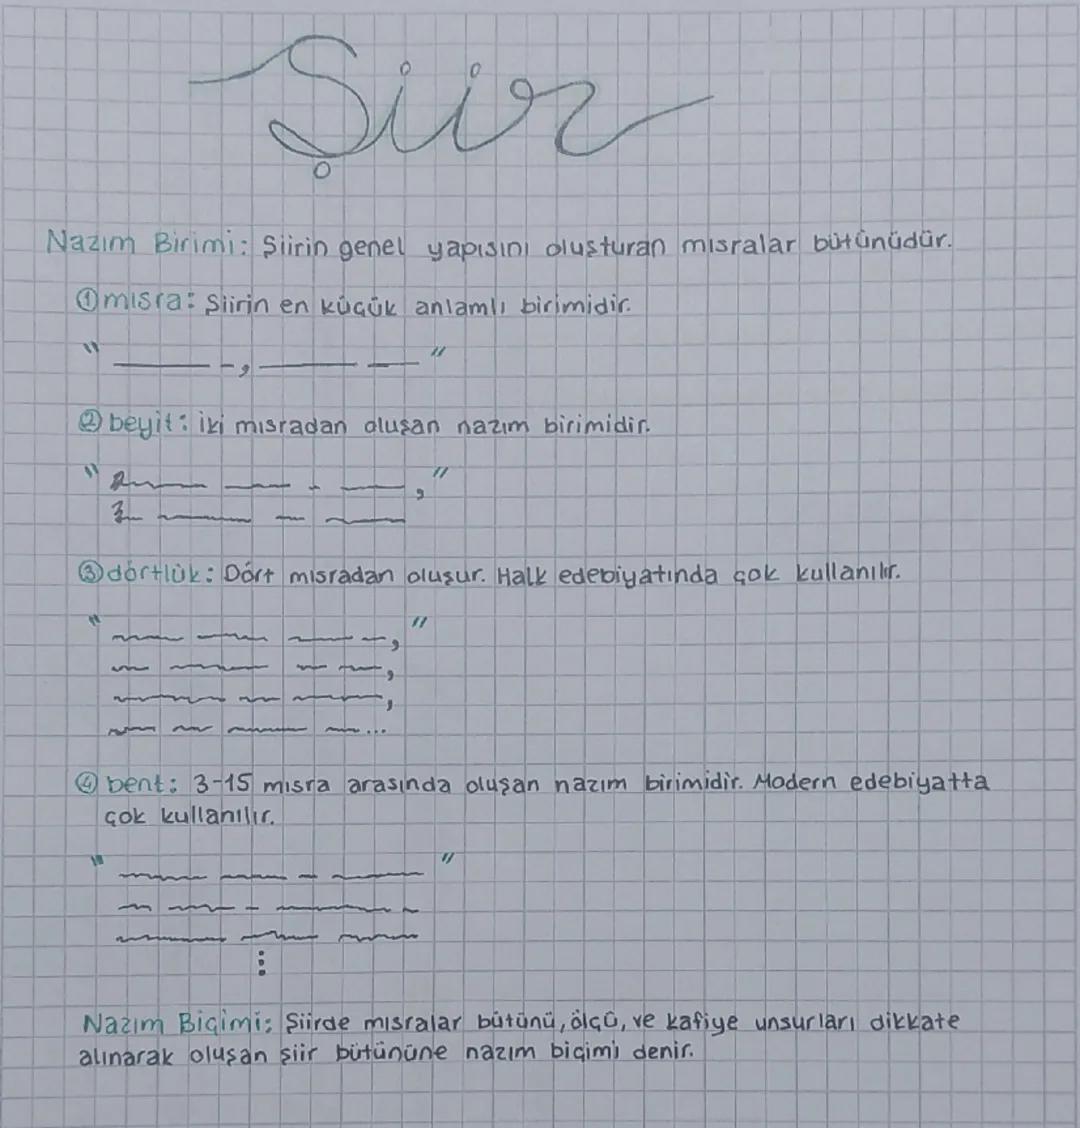 Şiir
Nazım Birimi: Şiirin genel yapısını oluşturan mısralar bütünüdür.
① mısra: Şiirin en küçük anlamlı birimidir.
② beyit: iki mısradan oluşan nazım birimidir.
③ dörtlük: Dört mısradan oluşur. Halk edebiyatında çok kullanılır.
④ bent: 3-15 mısra arasında oluşan nazım birimidir. Modern edebiyatta
çok kullanılır.
Nazım Biçimi: Şiirde mısralar bütünü, ölçü, ve kafiye unsurları dikkate
alınarak oluşan şiir bütününe nazım biçimi denir.